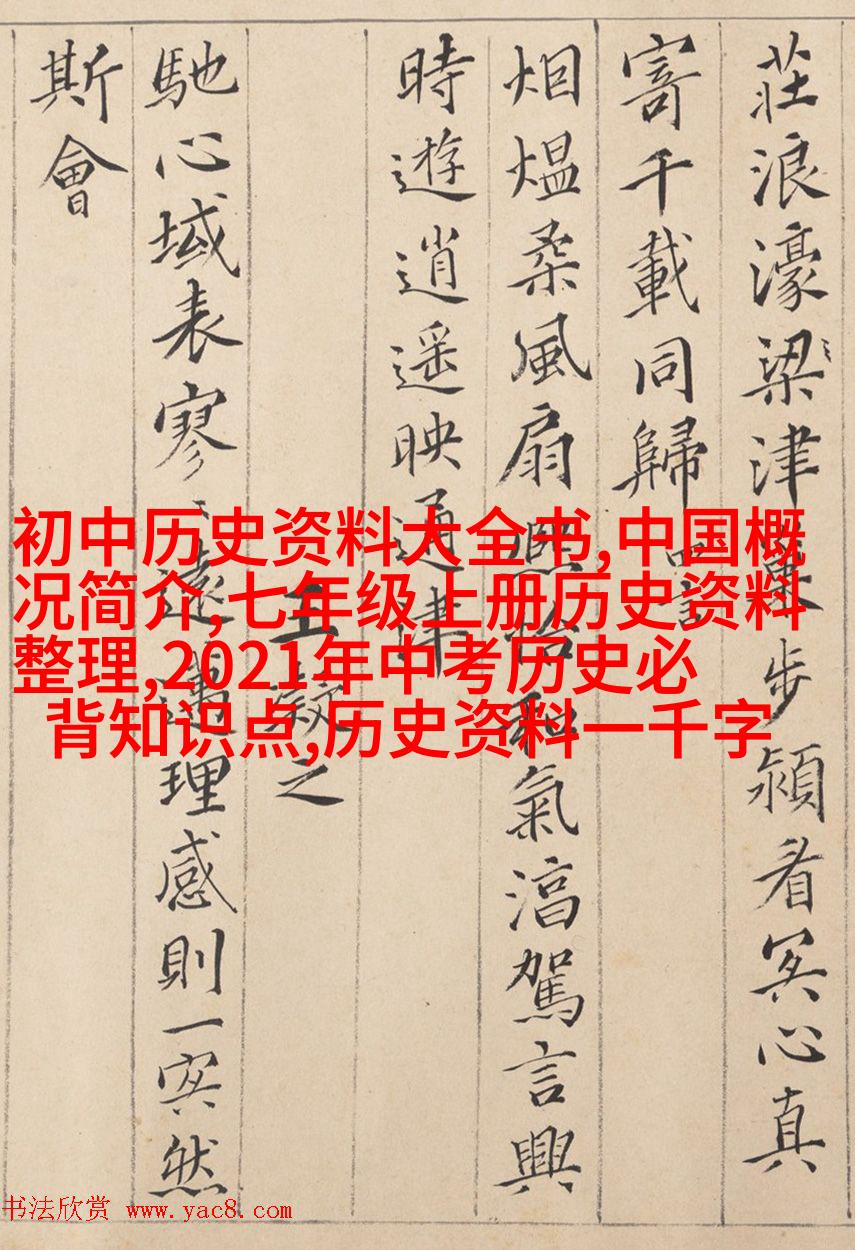 莊浪濠梁津巢步潁看冥心真
寄千載同歸 四言
烟熅柔風扇熙怡和氣湻駕言興
時遊逍遥映通津
王凝之
馳心域表寥〻遠邁理感則一冥然
斯會
初中历史资料大全书,中国概
况简介,七年级上册历史资料
整理,2021年中考历史必
背知识点,历史资料一千字
书法欣赏 www.yac8.com